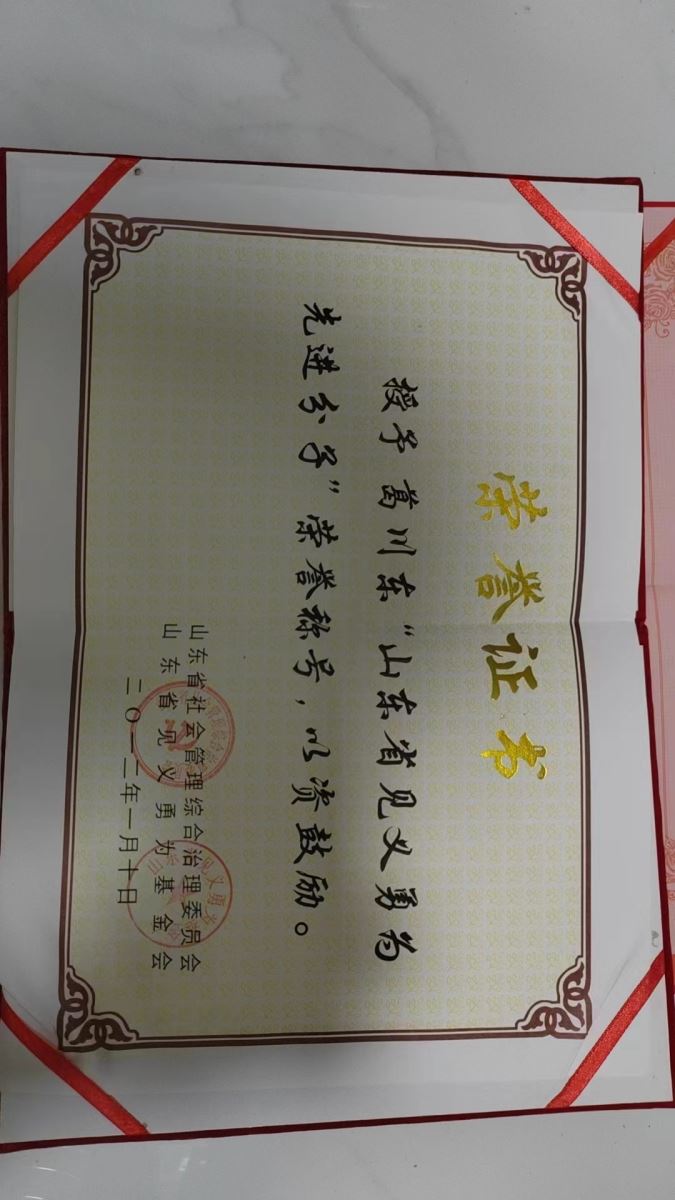 荣誉证书
授予葛川东“山东省见义勇为
先进分子”荣誉称号，以资鼓励。
山东省社会管理综合治理委员会
山东省见义勇为基金会
二〇一二年一月十日